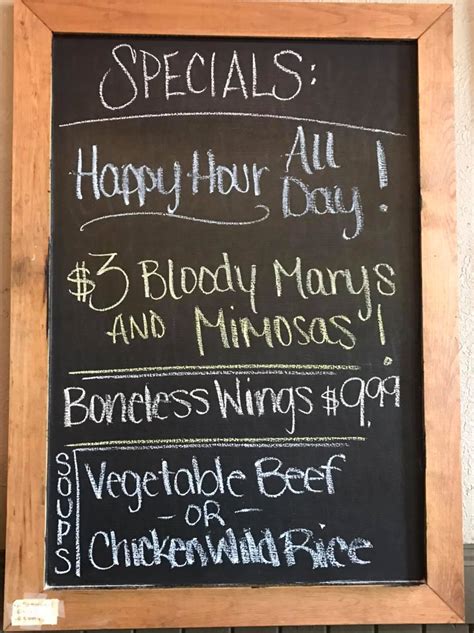 SPECIALS:
Happy Hour All Day!
$3 Bloody Marys
AND Mimosas!
Boneless Wings $9.99
SOUPS
Vegetable Beef
- OR -
Chicken Wild Rice